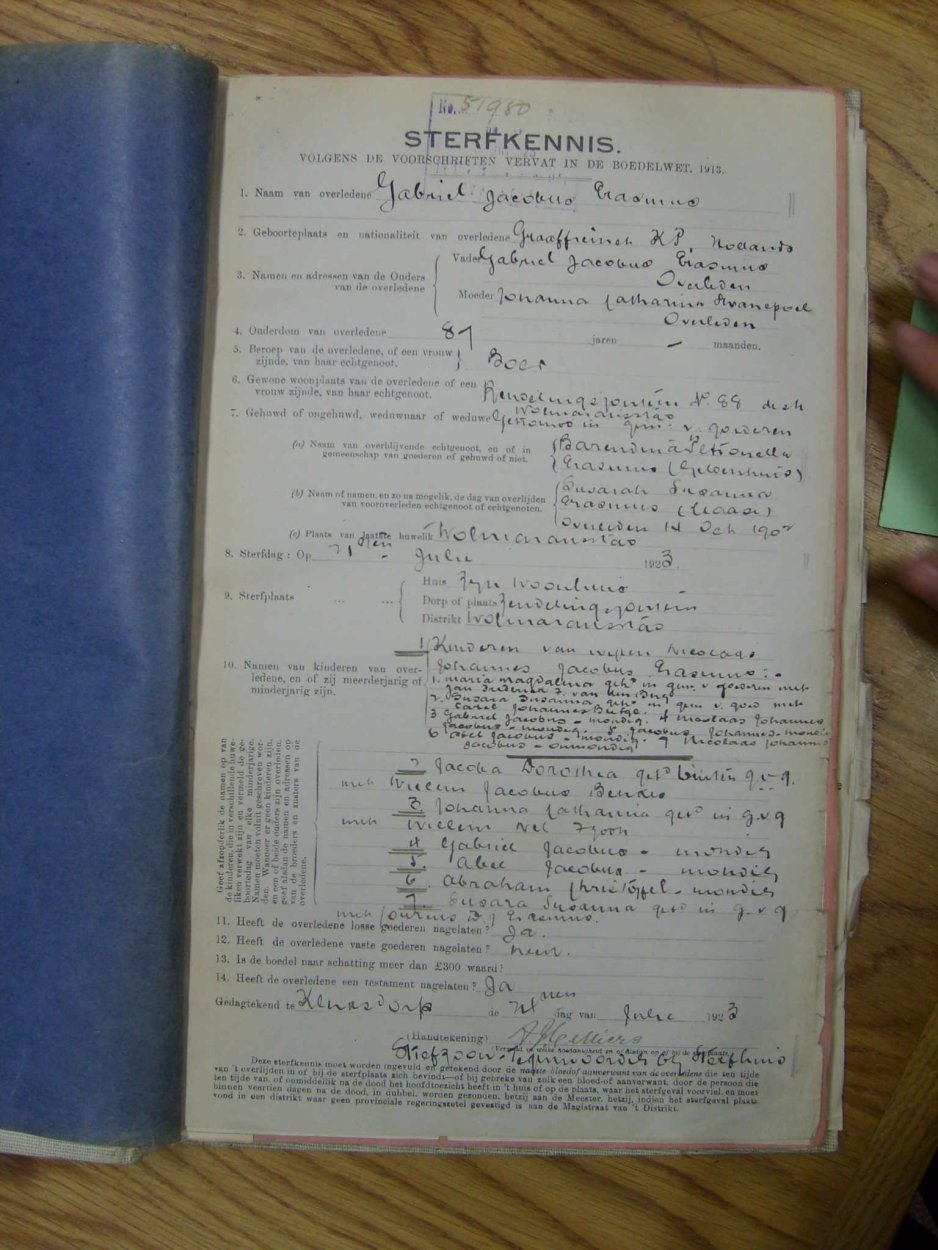 No. 51980
STERFKENNIS.
VOLGENS DE VOORSCHRIFTEN VERVAT IN DE BOEDELWET, 1913.
1. Naam van overledene Gabriel Jacobus Erasmus
2. Geboorteplaats en nationaliteit van overledene Graaffreinet KP, Hollands
3. Namen en adressen van de Ouders van de overledene
Vader Gabriel Jacobus Erasmus
Overleden
Moeder Johanna Catharina Swanepoel
Overleden
4. Ouderdom van overledene 87 jaren - maanden.
5. Beroep van de overledene, of een vrouw zijnde, van haar echtgenoot. Boer
6. Gewone woonplaats van de overledene of een vrouw zijnde, van haar echtgenoot. Zendelingsfontein No. 88 distr
Wolmaransstad
7. Gehuwd of ongehuwd, weduwnaar of weduwe Getrouwd in gem: v. goederen
(a) Naam van overblijvende echtgenoot, en of in gemeenschap van goederen of gehuwd of niet.
Barendina Petronella
Erasmus
(b) Naam of namen, en zo na mogelik, de dag van overlijden van vooroverleden echtgenoot of echtgenoten.
Susarah Susanna
Erasmus
Overleden 14 Oct
(c) Plaats van laatste huwelik Wolmaransstad
8. Sterfdag: Op 21sten Julie 1923
9. Sterfplaats ... ...
Huis Zyn Woonhuis
Dorp of plaats Zendelingsfontein
Distrikt Wolmaransstad
10. Namen van kinderen van overledene, en of zij meerderjarig of minderjarig zijn.
1 Kinderen van wylen Nicolaas
Johannes Jacobus Erasmus:-
1. Maria Magdalena geh: in gem. v goederen met
Jan F. van den Berg
2. Susara Susanna geh: in gem v. goed met
Carel Johannes
3 Gabriel Jacobus - mondig. 4 Nicolaas Johannes
Jacobus - mondig. 5. Jacobus Johannes - mondig
6 Abel Jacobus - mondig. 7 Nicolaas Johannes
Jacobus - onmondig
Geef afzonderlik de namen op van de kinderen, die in verschillende huweliken verwekt zijn en vermeld de geboortedag van elke minderjarige. Namen moeten voluit geschreven worden. Wanneer er geen kinderen zijn, en een of beide ouders zijn overleden, geef alsdan de namen en adressen op van de broeders en zusters van de overledene.
2 Jacoba Dorothea get: buiten g.v.g.
met Willem Jacobus
3. Johanna Catharina get: in g.v.g
met Willem Nel
4 Gabriel Jacobus - mondig
5. Abel Jacobus - mondig
6. Abraham Christoffel - mondig
7. Susara Susanna get: in g.v.g.
met Lourens D.J. Erasmus.
11. Heeft de overledene losse goederen nagelaten? Ja.
12. Heeft de overledene vaste goederen nagelaten? neen.
13. Is de boedel naar schatting meer dan £300 waard?
14. Heeft de overledene een testament nagelaten? Ja
Gedagtekend te Klerksdorp de dag van Julie 1923
(Handtekening)
Stiefzoon. Tegenwoordig bij Sterfhuis
Deze sterfkennis moet worden ingevuld en getekend door de naaste bloed of aanverwant van de overledene die ten tijde
van 't overlijden in of bij de sterfplaats zich bevindt—of bij gebreke van zulk een bloed-of aanverwant, door de persoon die
ten tijde van, of onmiddellijk na de dood het hoofdtoezicht heeft in 't huis of op de plaats, waar het sterfgeval voorviel, en moet
binnen veertien dagen na de dood, in dubbel, worden gezonden, hetzij aan de Meester, hetzij, indien het sterfgeval plaats
vond in een distrikt waar geen provinciale regeringszetel gevestigd is aan de Magistraat van 't Distrikt.